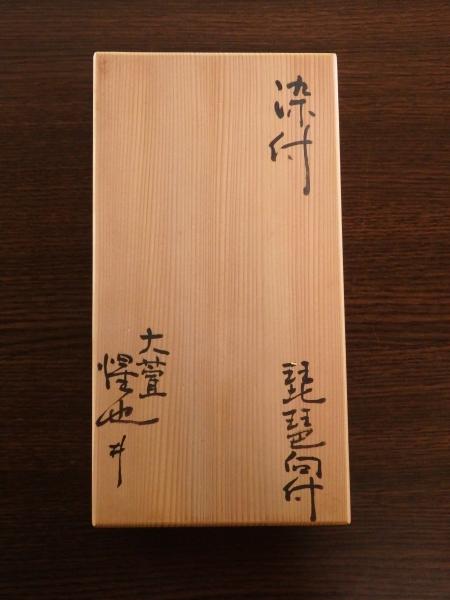 染付
琵琶向付
大萱
惺也